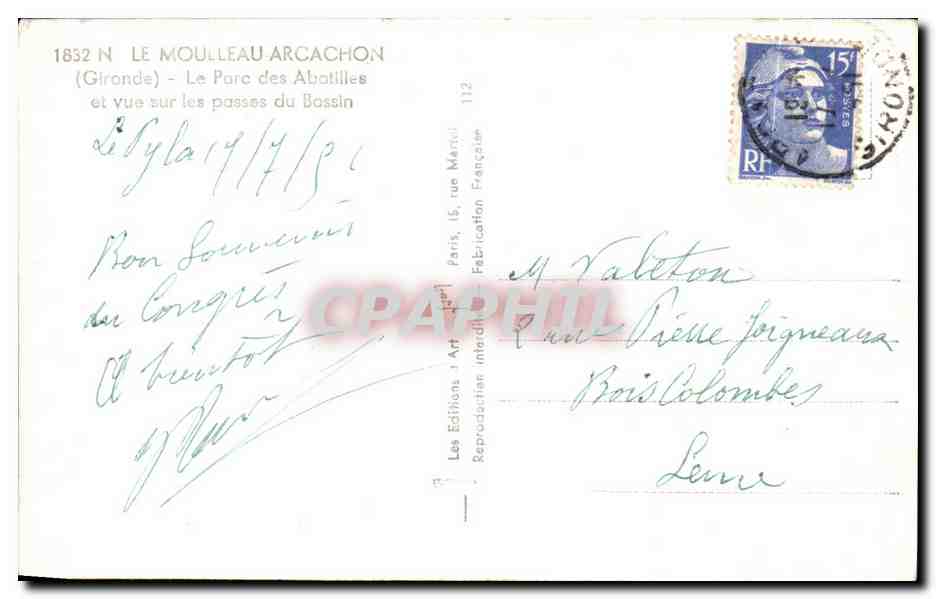 1832 N LE MOULLEAU-ARCACHON
(Gironde) - Le Parc des Abatilles
et vue sur les passes du Bassin
Le Pyla 17/7/51
Bon Souvenir
du Congrès
A bientôt
112
Les Editions d'Art Paris, 15, rue Martel
Reproduction interdite Fabrication Française
CPAPHIL
15F
POSTES
RF
18H
17
GIRONDE
M Valeton
2 rue Pierre Joigneaux
Bois Colombes
Seine